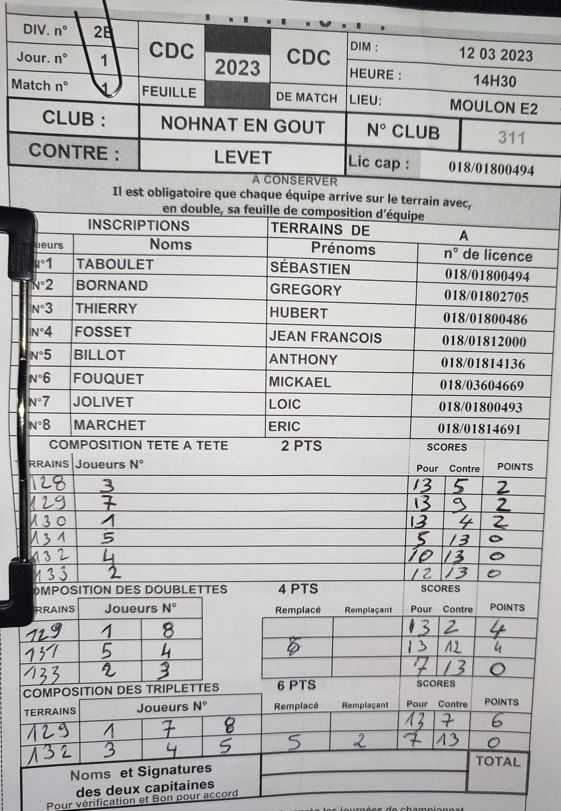 DIV. n° 2B CDC 2023 CDC DIM : 12 03 2023
Jour. n° 1 HEURE : 14H30
Match n° 1 FEUILLE DE MATCH LIEU: MOULON E2
CLUB : NOHNAT EN GOUT N° CLUB 311
CONTRE : LEVET Lic cap : 018/01800494
A CONSERVER
Il est obligatoire que chaque équipe arrive sur le terrain avec,
en double, sa feuille de composition d'équipe
INSCRIPTIONS TERRAINS DE A
ueurs Noms Prénoms n° de licence
N°1 TABOULET SÉBASTIEN 018/01800494
N°2 BORNAND GREGORY 018/01802705
N°3 THIERRY HUBERT 018/01800486
N°4 FOSSET JEAN FRANCOIS 018/01812000
N°5 BILLOT ANTHONY 018/01814136
N°6 FOUQUET MICKAEL 018/03604669
N°7 JOLIVET LOIC 018/01800493
N°8 MARCHET ERIC 018/01814691
COMPOSITION TETE A TETE 2 PTS SCORES
RRAINS Joueurs N° Pour Contre POINTS
128 3 13 5 2
129 7 13 9 2
130 1 13 4 2
131 5 5 13 0
132 4 10 13 0
133 2 12 13 0
OMPOSITION DES DOUBLETTES 4 PTS SCORES
RRAINS Joueurs N° Remplacé Remplaçant Pour Contre POINTS
129 1 8 13 2 4
131 5 4 13 12 4
133 2 3 7 13 0
COMPOSITION DES TRIPLETTES 6 PTS SCORES
TERRAINS Joueurs N° Remplacé Remplaçant Pour Contre POINTS
129 1 7 8 13 7 6
132 3 4 5 5 2 7 13 0
Noms et Signatures TOTAL
des deux capitaines
Pour vérification et Bon pour accord
après les journées de championnat